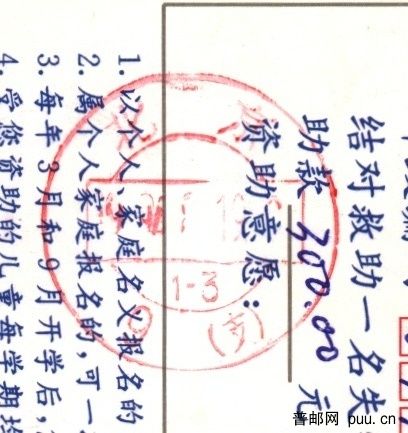 结对救助一名失
助款 300.00 元
资助意愿：
1. 以个人、家庭名义报名的
2. 属个人家庭报名的，可一
3. 每年3月和9月开学后，
4. 受您资助的儿童每学期
1-3
(支)
普邮网 puu.cn